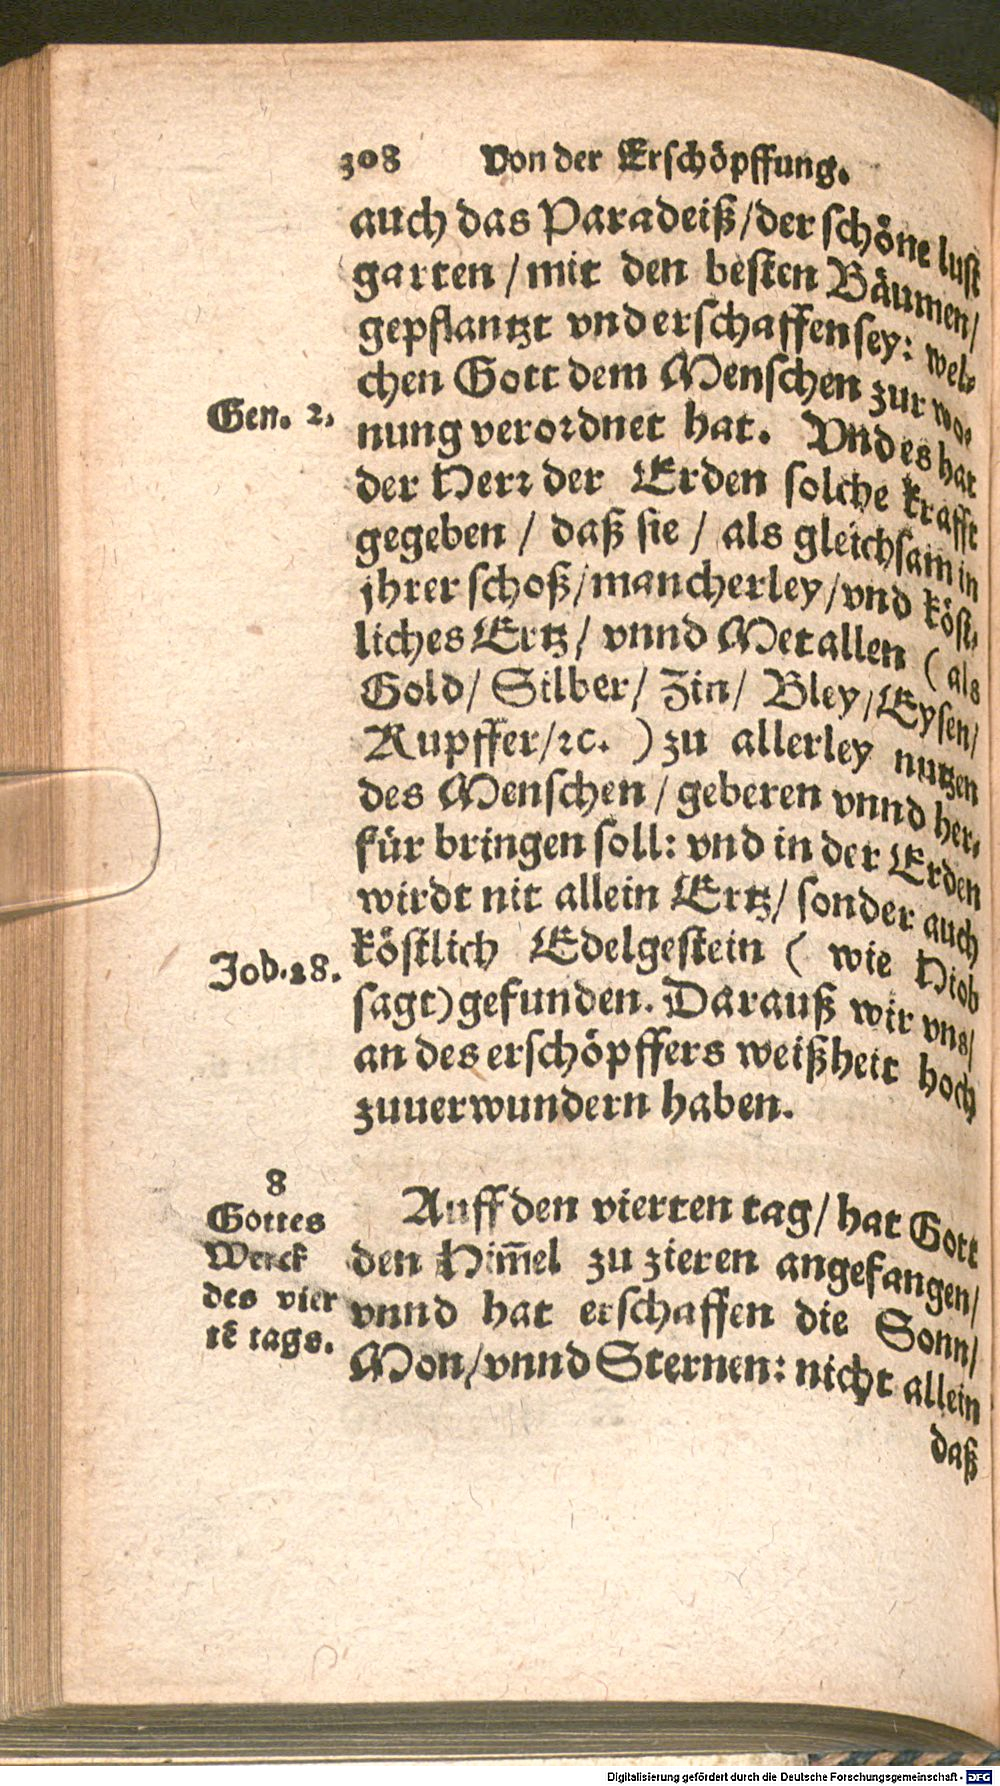 308 Von der Erschöpffung.
auch das Paradeiß/der schöne lust
garten/mit den besten Bäumen/
gepflantzt vnd erschaffen sey: wel-
chen Gott dem Menschen zur wo-
Gen. 2.
nung verordnet hat. Vnd es hat
der Herr der Erden solche krafft
gegeben/ daß sie/ als gleichsam in
jhrer schoß/mancherley/vnd köst-
liches Ertz/ vnnd Metallen (als
Gold/ Silber/ Zin/ Bley/Eysen/
Kupffer/ꝛc. ) zu allerley nutzen
des Menschen/ geberen vnnd her-
für bringen soll: vnd in der Erden
wirdt nit allein Ertz/ sonder auch
köstlich Edelgestein ( wie Hiob
Job.28.
sagt) gefunden. Darauß wir vns/
an des erschöpffers weißheit hoch
zuuerwundern haben.
8
Gottes
Werck
des vier
tē tags.
Auff den vierten tag/ hat Gott
den Him̄el zu zieren angefangen/
vnnd hat erschaffen die Sonn/
Mon/vnnd Sternen: nicht allein
daß
Digitalisierung gefördert durch die Deutsche Forschungsgemeinschaft - DFG